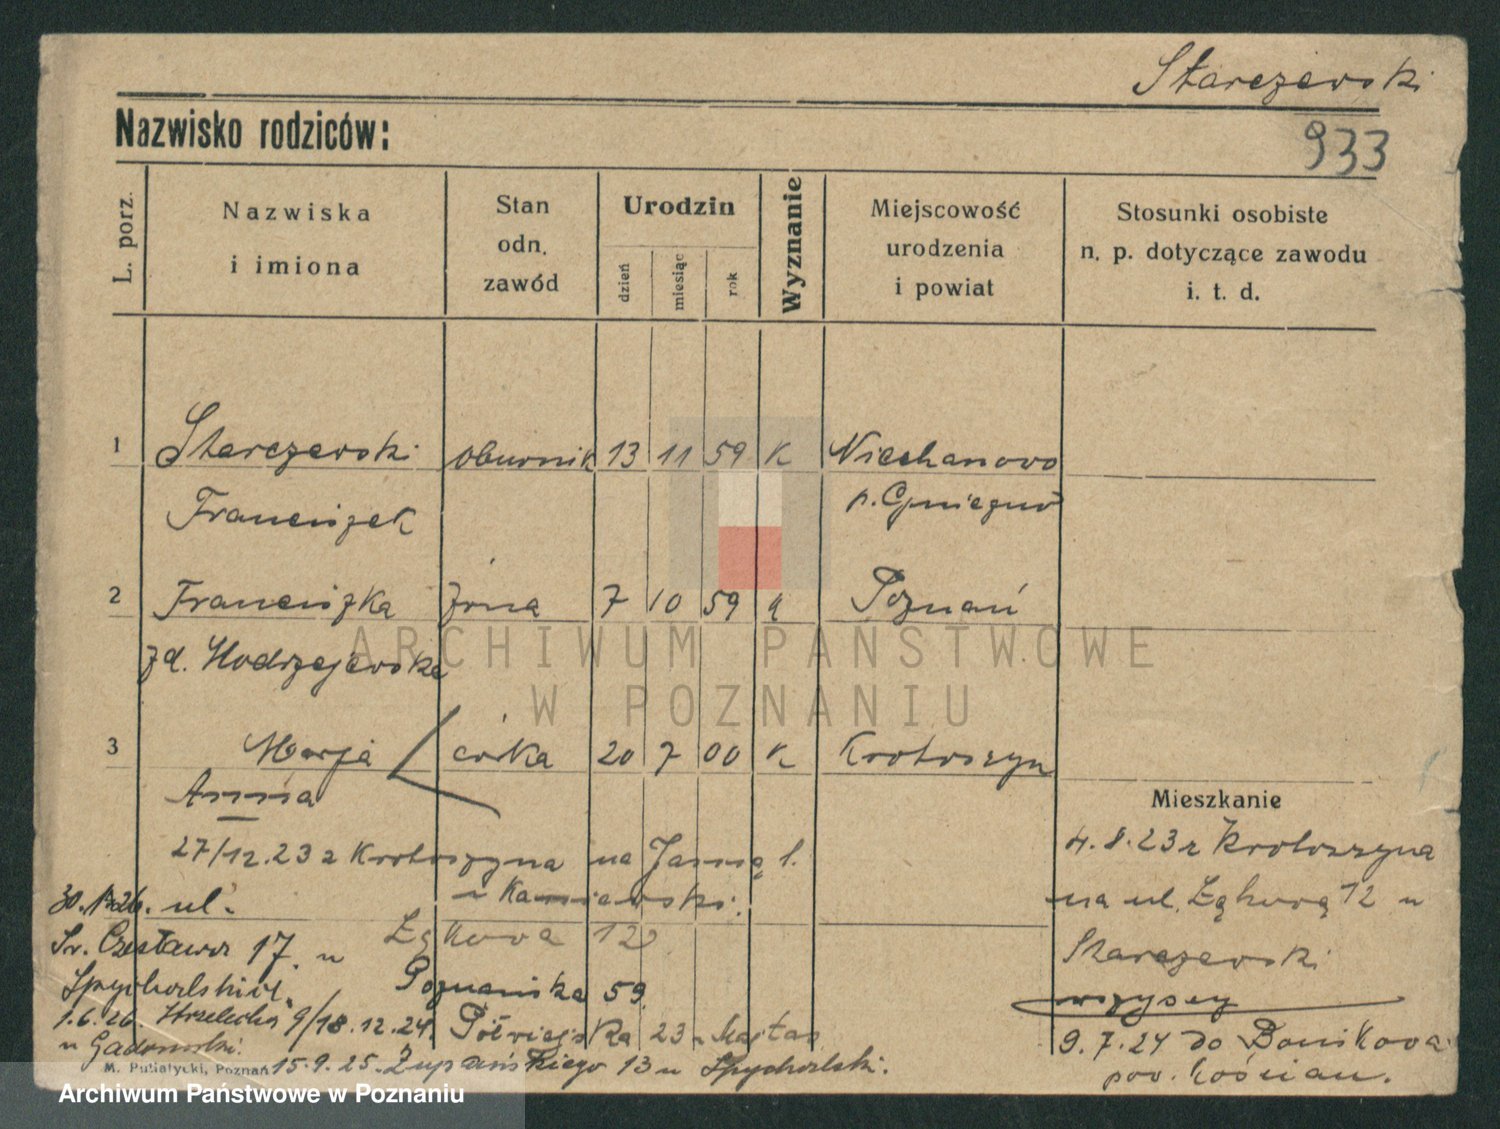 Starczewski
Nazwisko rodziców:
933
L. porz.
Nazwiska
i imiona
Stan
odn.
zawód
Urodzin
dzień
miesiąc
rok
Wyznanie
Miejscowość
urodzenia
i powiat
Stosunki osobiste
n. p. dotyczące zawodu
i. t. d.
1 Starczewski 13 11 59 K Niechanowo
Franciszek
2 Franciszka żona 7 10 59 Poznań
zd. Hodrzejewska
3 Marja córka 20 7 00 K Krotoszyn
Anna
27/12.23 z Krotoszyna na Jasną 1.
u Kamiewski.
Mieszkanie
4.8.23 z Krotoszyna
na ul. Łąkową 12 u
Starczewski
wszyscy
9.7.24 do Bonikowa
pow. Kościan.
ul.
Łąkowa 12
Św. Czesława 17. u
Spychalskich.
Poznańska 59
9/18.12.24. Półwiejska 23 u Majtas
1.6.26. Strzelecka
u Gadomski.
15.9.25. Żupańskiego 13 u Spychalski.
M. Putiatycki, Poznań
ARCHIWUM PAŃSTWOWE
W POZNANIU
Archiwum Państwowe w Poznaniu